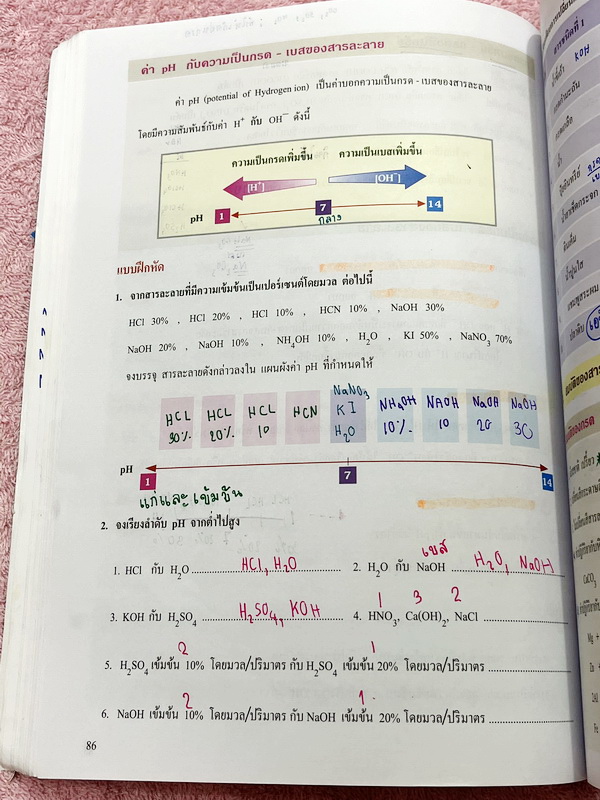 ค่า pH กับความเป็นกรด - เบสของสารละลาย
ค่า pH (potential of Hydrogen ion) เป็นค่าบอกความเป็นกรด - เบสของสารละลาย
โดยมีความสัมพันธ์กับค่า H⁺ กับ OH⁻ ดังนี้
ความเป็นกรดเพิ่มขึ้น ความเป็นเบสเพิ่มขึ้น
[H⁺] [OH⁻]
pH 1 7 14
กลาง
แบบฝึกหัด
1. จากสารละลายที่มีความเข้มข้นเป็นเปอร์เซนต์โดยมวล ต่อไปนี้
HCl 30% , HCl 20% , HCl 10% , HCN 10% , NaOH 30%
NaOH 20% , NaOH 10% , NH₄OH 10% , H₂O , KI 50% , NaNO₃ 70%
จงบรรจุ สารละลายดังกล่าวลงใน แผนผังค่า pH ที่กำหนดให้
HCL 30% HCL 20% HCL 10 HCN NaNO₃ KI H₂O NH₄OH 10% NAOH 10 NaOH 20 NaOH 30
pH 1 7 14
แก่และเข้มข้น
2. จงเรียงลำดับ pH จากต่ำไปสูง
เบส
1. HCl กับ H₂O HCl, H₂O 2. H₂O กับ NaOH H₂O, NaOH
1 3 2
3. KOH กับ H₂SO₄ H₂SO₄, KOH 4. HNO₃, Ca(OH)₂, NaCl
2 1
5. H₂SO₄ เข้มข้น 10% โดยมวล/ปริมาตร กับ H₂SO₄ เข้มข้น 20% โดยมวล/ปริมาตร
2 1
6. NaOH เข้มข้น 10% โดยมวล/ปริมาตร กับ NaOH เข้มข้น 20% โดยมวล/ปริมาตร
86
สารชนิดที่ 1
KOH
CaCO₃
Mg +